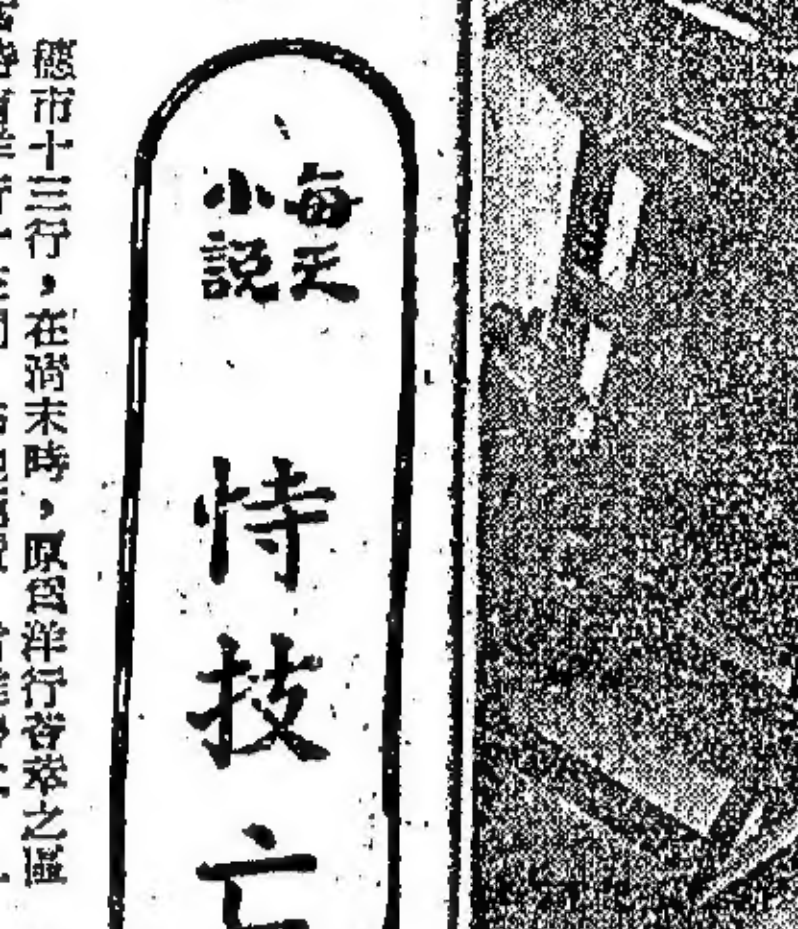 每天
小説
恃技亡
穗市十三行，在清末時，原爲洋行薈萃之區